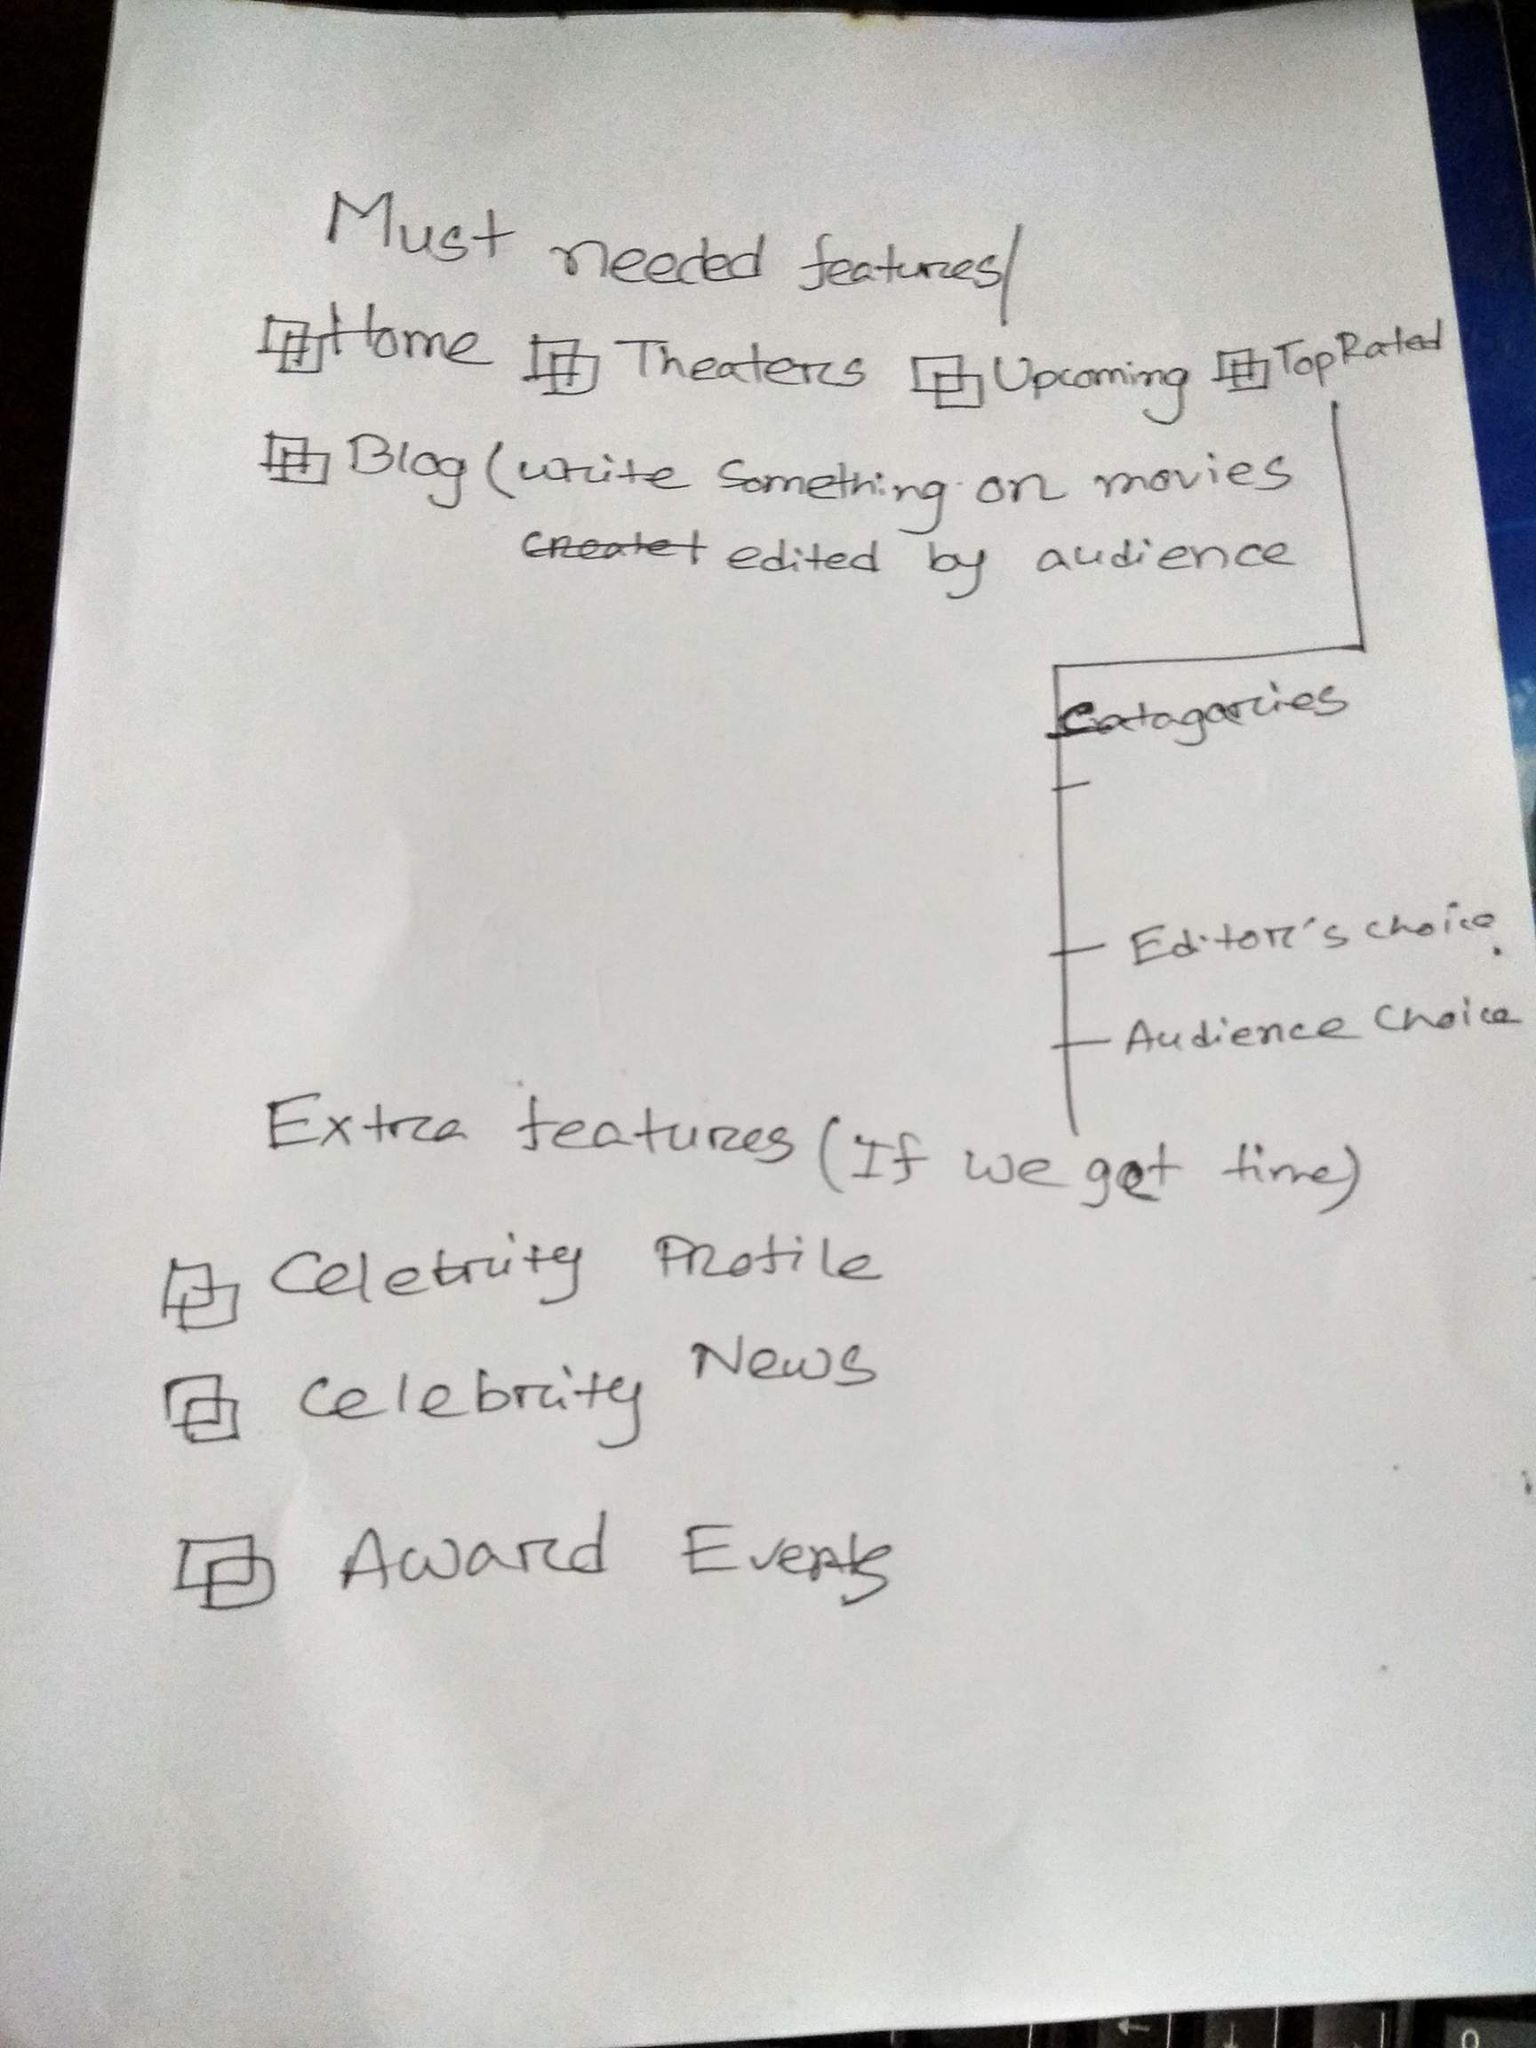 Must needed features/
Home Theaters Upcoming Top Rated
Blog (write something on movies
createt edited by audience
Catagories
Editor's choice
Audience Choice
Extra features (If we get time)
Celebrity Profile
Celebrity News
Award Events